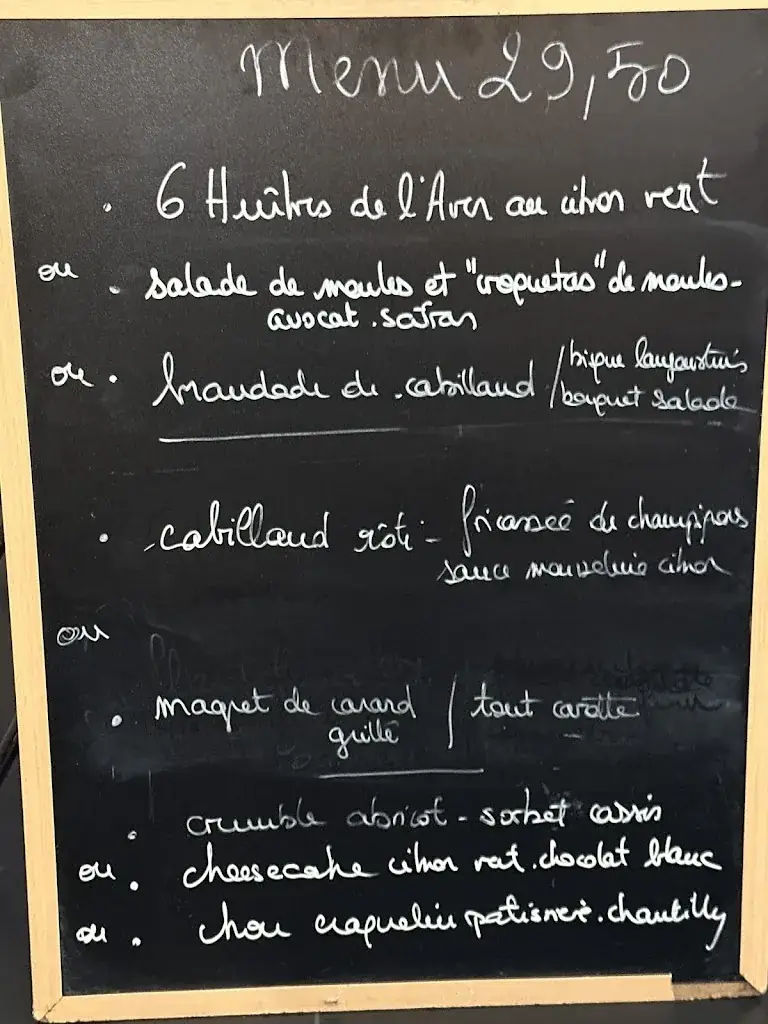 Menu 29,50
. 6 Huîtres de l'Aven au citron vert
ou . salade de moules et "croquetas" de moules-
avocat.safran
ou . brandade de cabillaud / bisque langoustines
bouquet salade
. cabillaud rôti - fricassée de champignons
sauce mousseline citron
ou
. magret de canard / tout carotte
grillé
. crumble abricot - sorbet cassis
ou . cheesecake citron vert.chocolat blanc
ou . chou craquelin patissière.chantilly